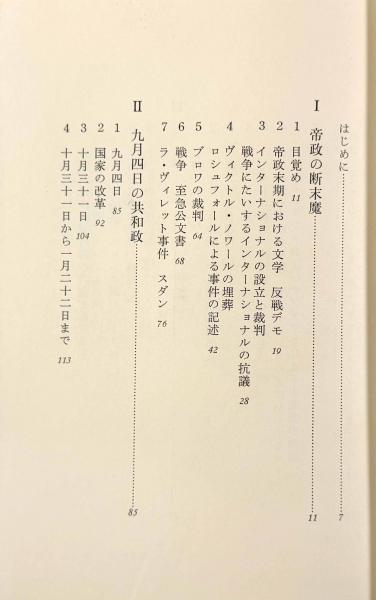 はじめに……7
I 帝政の断末魔……11
1 目覚め 11
2 帝政末期における文学 反戦デモ 19
3 インターナショナルの設立と裁判
戦争にたいするインターナショナルの抗議 28
4 ヴィクトル・ノワールの埋葬
ロシュフォールによる事件の記述 42
5 ブロワの裁判 64
6 戦争 至急公文書 68
7 ラ・ヴィレット事件 スダン 76
II 九月四日の共和政……85
1 九月四日 85
2 国家の改革 92
3 十月三十一日 104
4 十月三十一日から一月二十二日まで 113